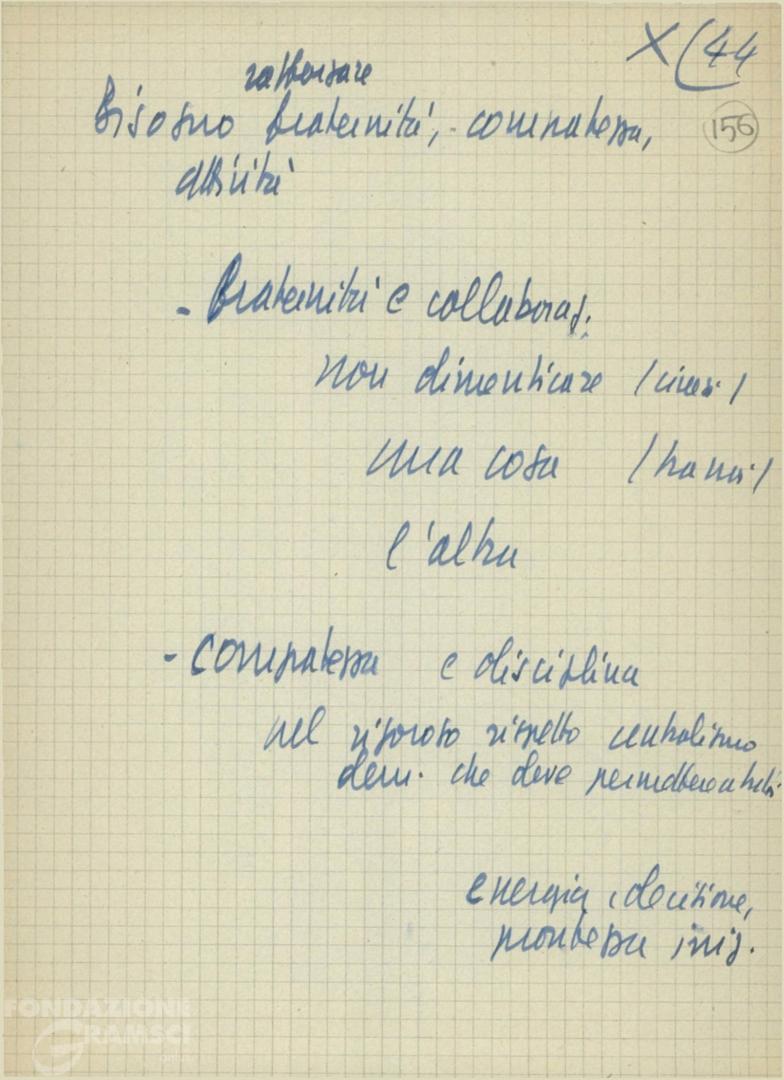 X (44
rafforzare
Bisogno fraternità, - compattezza,
156
attività
- fraternità e collaboraz.
non dimenticare / cinesi /
una cosa /
l'altra
- compattezza e disciplina
nel rigoroso rispetto centralismo
dem. che deve permettere a tutti
energia, decisione,
prontezza iniz.
FONDAZIONE
GRAMSCI